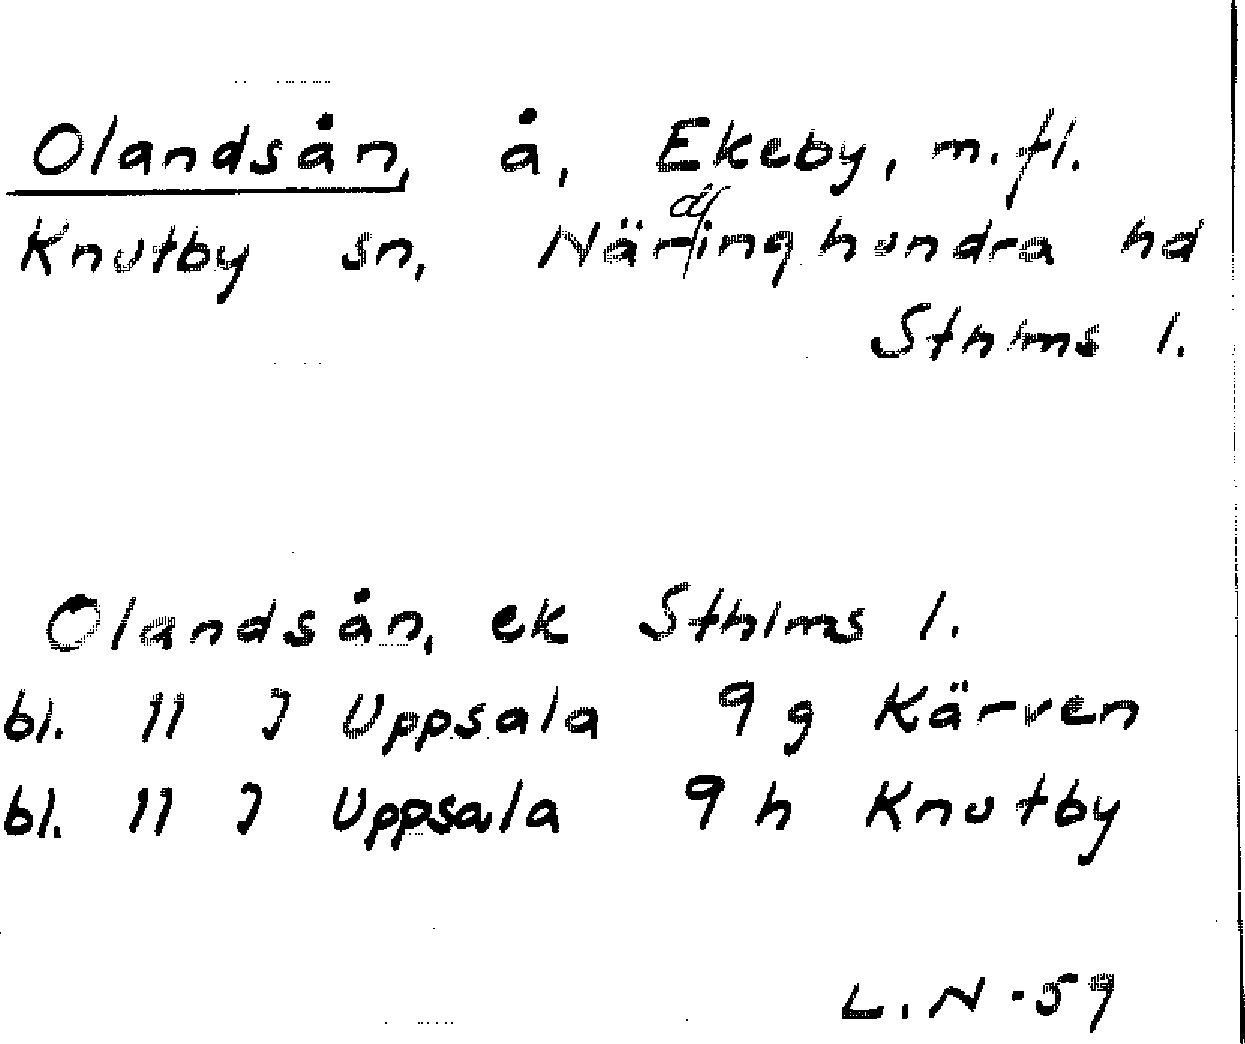 Olandsån, å, Ekeby, m.fl.
Knutby sn, Närdinghundra hd
Sthlms l.
Olandsån, ek Sthlms l.
bl. 11 J Uppsala 9 g Kärven
bl. 11 J Uppsala 9 h Knutby
L.N -59